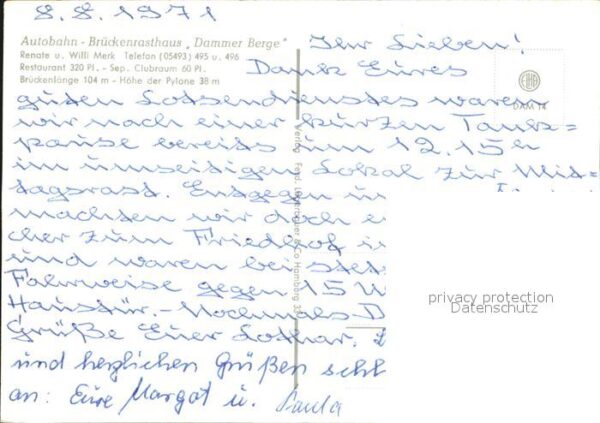 8.8.1971
Autobahn - Brückenrasthaus „Dammer Berge"
Renate u. Willi Merk Telefon (05493) 495 u. 496
Restaurant 320 Pl. - Sep. Clubraum 60 Pl.
Brückenlänge 104 m - Höhe der Pylone 38 m
Ihr Lieben!
Dank Eures
guten Lotsendienstes waren
wir nach einer kurzen Tank=
pause bereits um 12.15h
im umseitigen Lokal zur Mit=
tagsrast. Entgegen un
machten wir doch e
cher zum Friedhof i
und waren bei stet
Fahrweise gegen 15 U
Haustür.- Nochmals D
Grüße Euer Lothar.
und herzlichen Grüßen schl
an: Eure Margot u. Paula
Verlag Foto
& Co Hamburg
privacy protection
Datenschutz